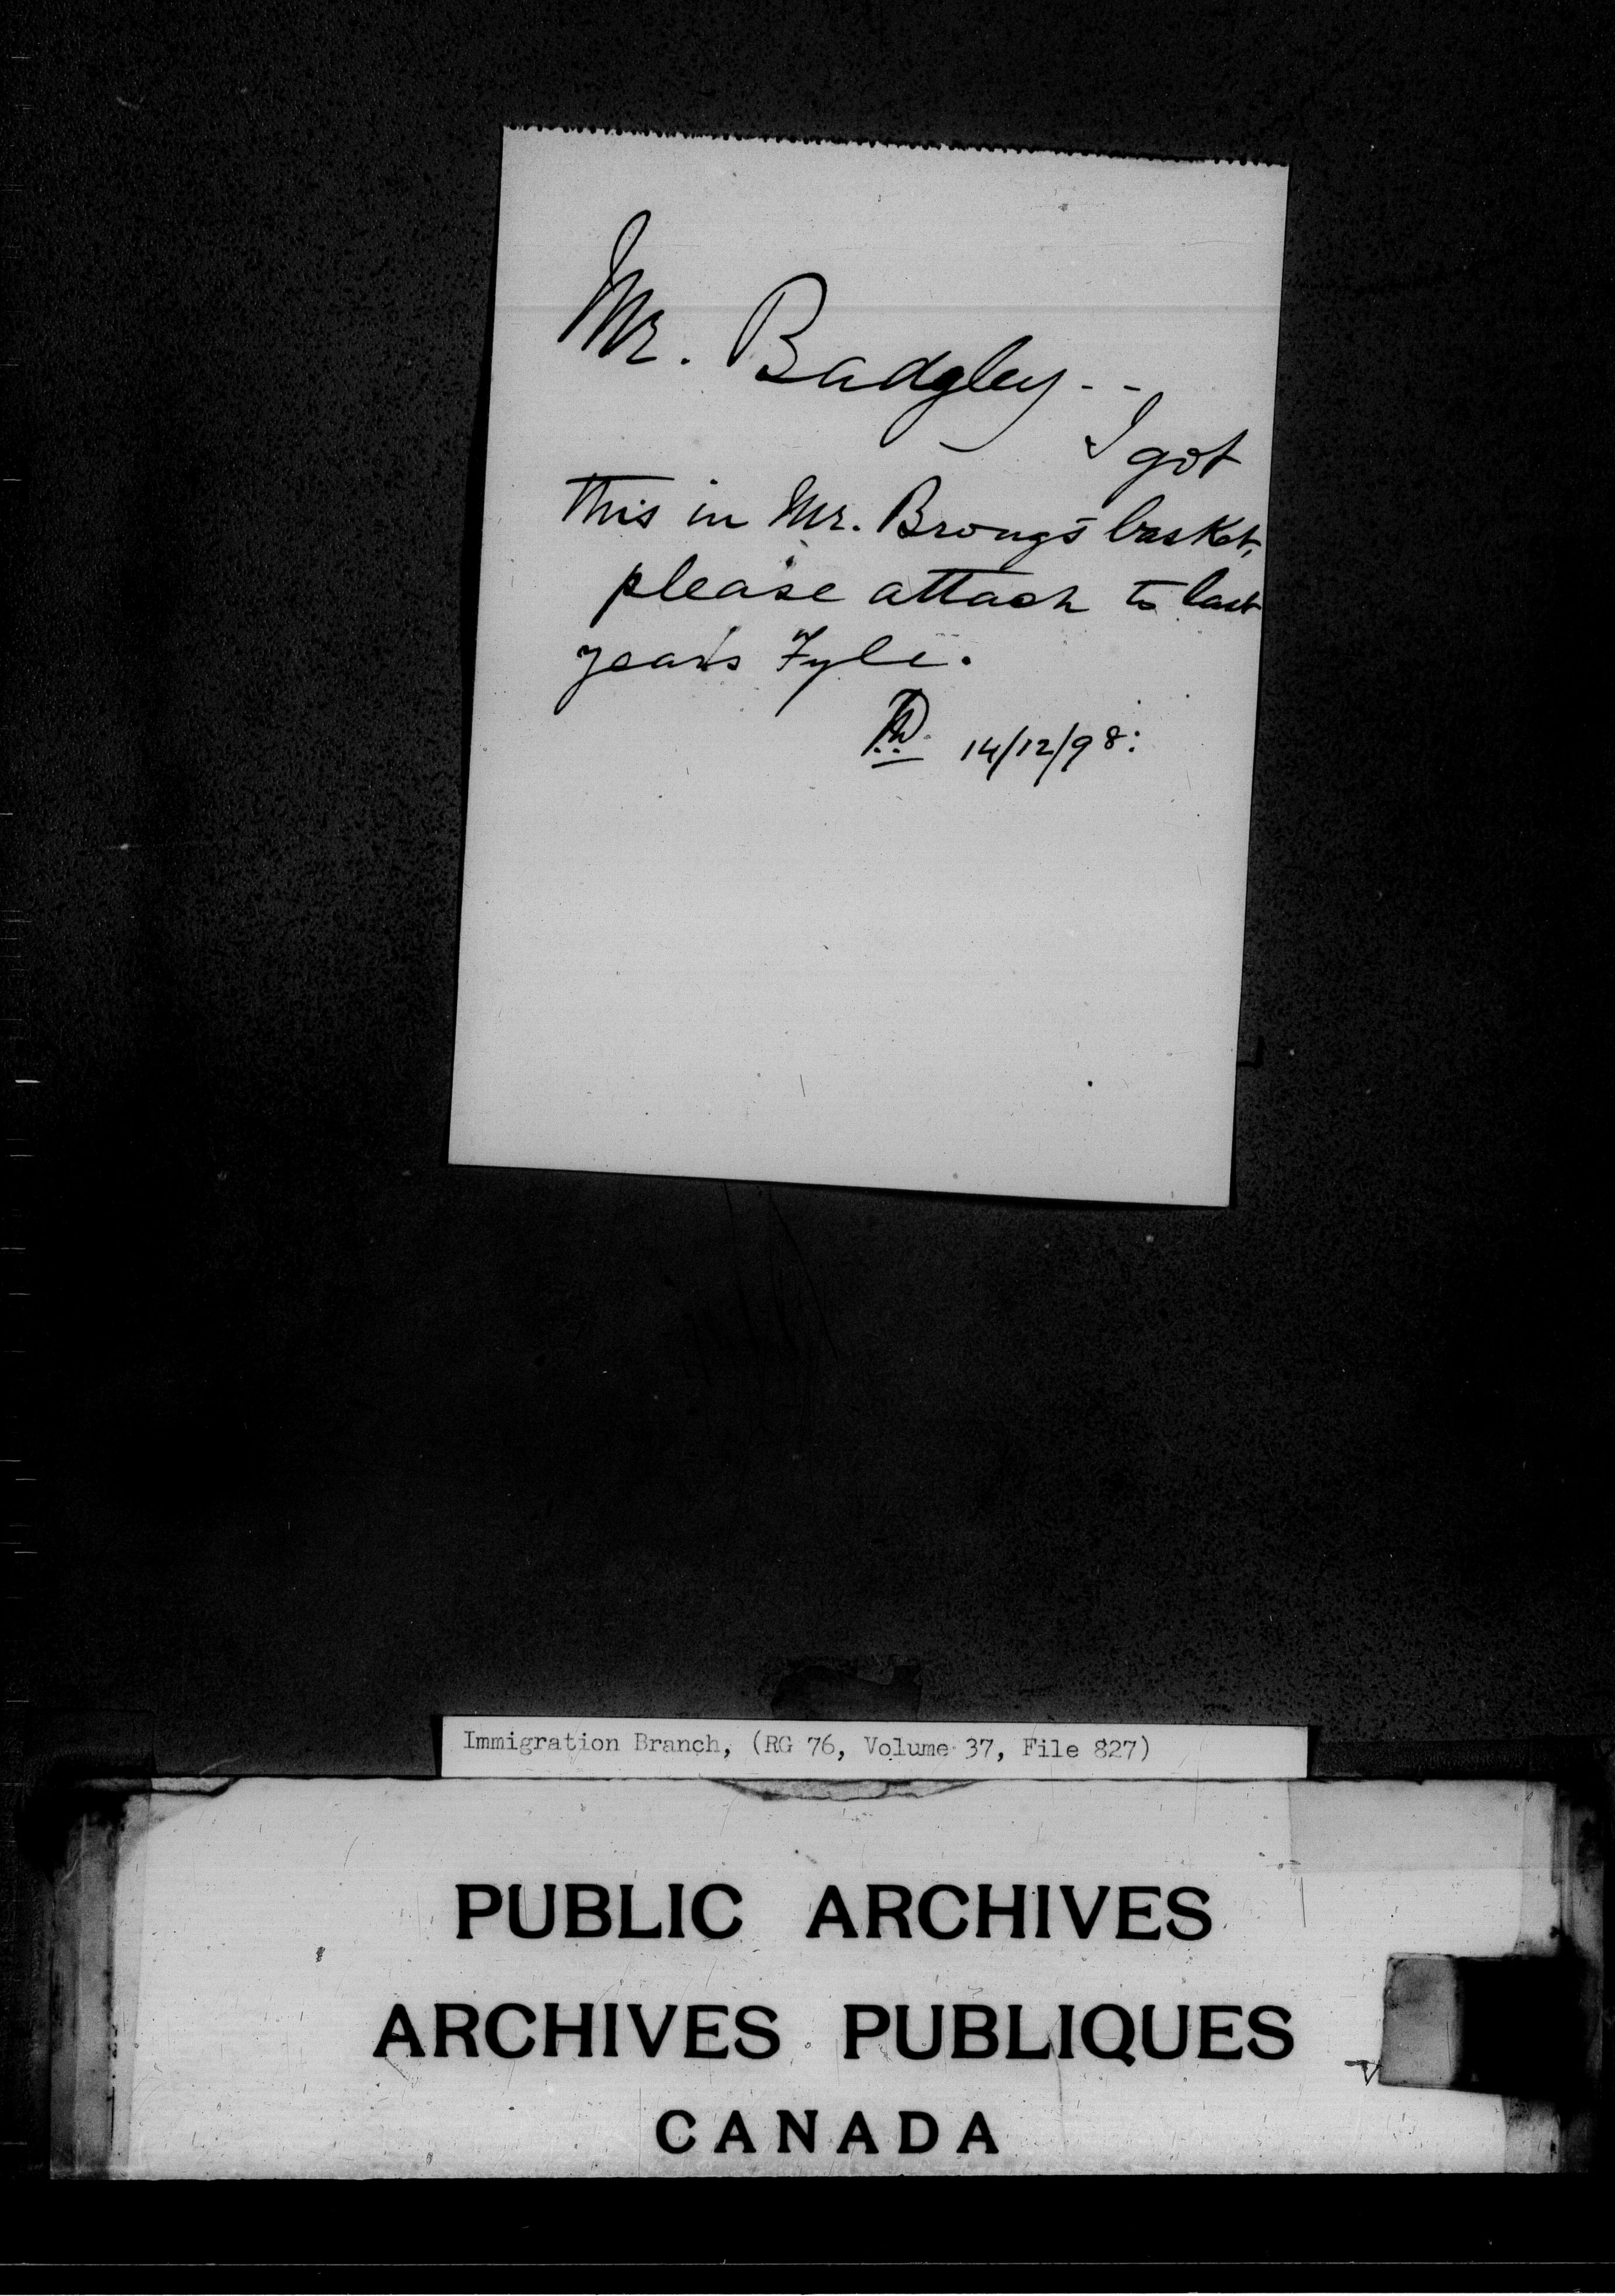 Mr. Badgley --
I got
this in Mr. Brong's basket,
please attach to last
year's Fyle.
14/12/98:
Immigration Branch, (RG 76, Volume 37, File 827)
PUBLIC ARCHIVES
ARCHIVES PUBLIQUES
CANADA